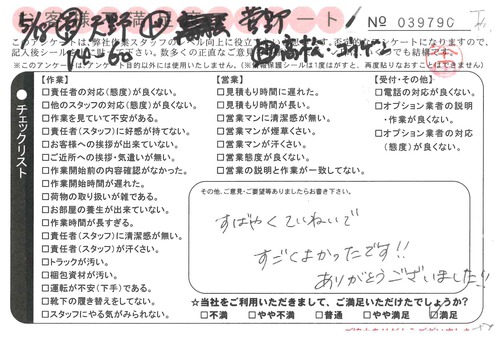 お客様 満 ート
№ 039790
このアンケートは、弊社作業スタッフのレベル向上に役立
記入後シール
※このアンケートは目的以外には使用いたしません。(※情報保護シールは1度はがすと、再度貼りなおすことはできません)
チェックリスト
【作業】
□責任者の対応(態度)が良くない。
□他のスタッフの対応(態度)が良くない。
□作業を見ていて不安がある。
□責任者(スタッフ)に好感が持てない。
□お客様への挨拶が出来ていない。
□ご近所への挨拶・気遣いが無い。
□作業開始前の内容確認がなかった。
□作業開始時間が遅れた。
□荷物の取り扱いが雑である。
□お部屋の養生が出来ていない。
□作業時間が長すぎる。
□責任者(スタッフ)に清潔感が無い。
□責任者(スタッフ)が汗くさい。
□トラックが汚い。
□梱包資材が汚い。
□運転が不安(下手)である。
□靴下の履き替えをしてない。
□スタッフにやる気がみられない。
【営業】
□見積もり時間に遅れた。
□見積もり時間が長い。
□営業マンに清潔感が無い。
□営業マンが煙草くさい。
□営業マンが汗くさい。
□営業態度が良くない。
□営業の説明と作業が一致してない。
【受付・その他】
□電話の対応が良くない。
□オプション業者の説明
・作業が良くない。
□オプション業者の対応
(態度)が良くない。
その他、ご意見・ご要望等ありましたらお書き下さい。
すばやくていねいで
すごくよかったです!!
ありがとうございました!!
☆当社をご利用いただきまして、ご満足いただけたでしょうか?
□不満 □やや不満 □普通 □やや満足 ☑満足